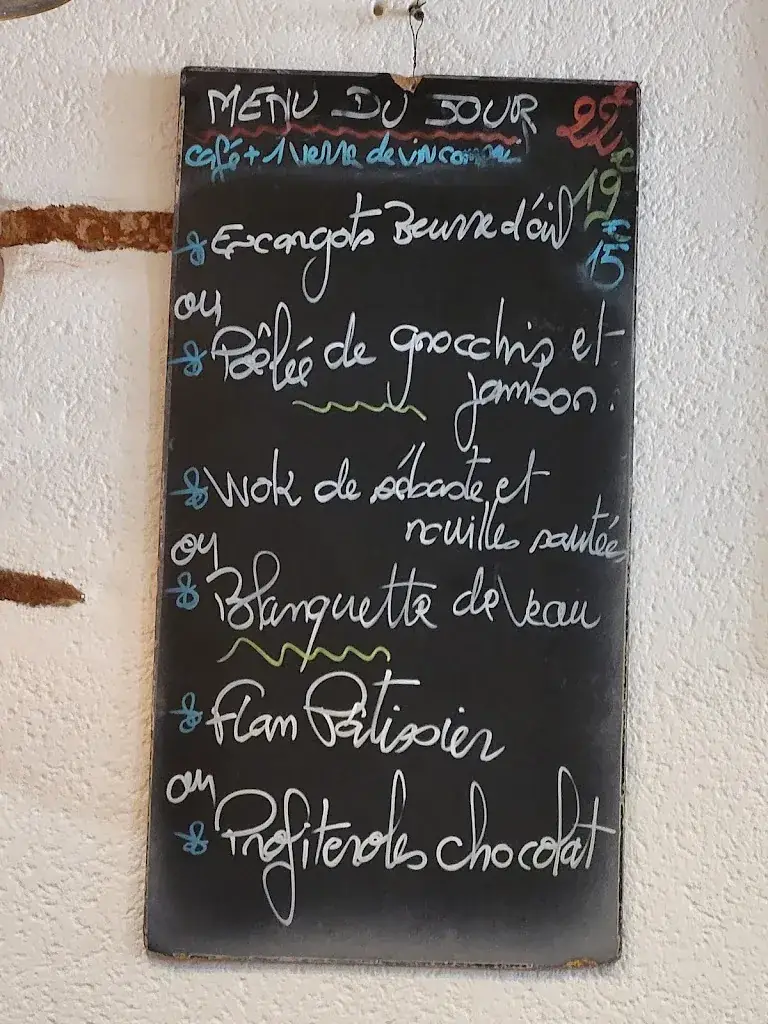 MENU DU JOUR 22€
café + 1 verre de vin compris
19€
* Escargots Beurre d'ail
15€
ou
* Poêlée de gnocchis et
jambon.
* Wok de sébaste et
nouilles sautées
ou
* Blanquette de Veau
* Flan Pâtissier
ou
* Profiteroles chocolat